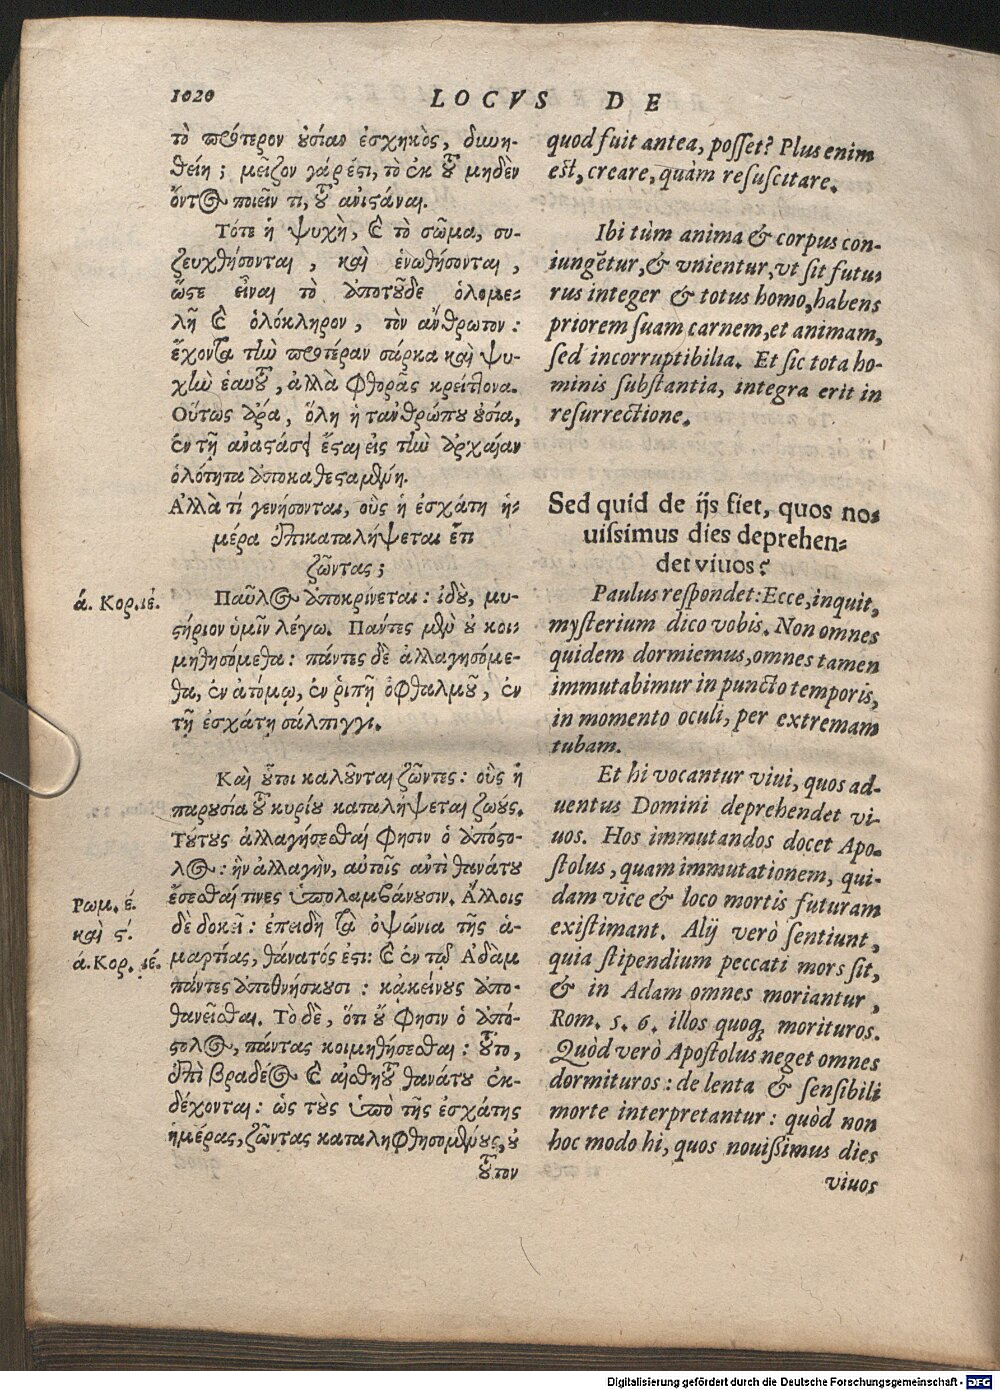 1020
LOCVS DE
τὸ πρότερον οὐσίαν ἐσχηκὸς, διωη-
θείη; μεῖζον γάρ ἐστι, τὸ ἐκ τοῦ μηδὲν
ὄντος ποιεῖν τι, τοῦ ἀνιστάναι.
Τότε ἡ ψυχὴ, καὶ τὸ σῶμα, συ-
ζευχθήσονται, καὶ ἑνωθήσονται,
ὥστε εἶναι τὸ ἀποτοῦδε ὁλομε-
λῆ καὶ ὁλόκληρον, τὸν ἄνθρωπον:
ἔχοντα τὴν προτέραν σάρκα καὶ ψυ-
χὴν ἑαυτοῦ, ἀλλὰ φθορᾶς κρείττονα.
Οὕτως ἄρα, ὅλη ἡ τἀνθρώπου οὐσία,
ἐν τῇ ἀναστάσει ἔσται εἰς τὴν ἀρχαίαν
ὁλότητα ἀποκαθεσταμένη.
Αλλὰ τί γενήσονται, οὓς ἡ ἐσχάτη ἡ-
μέρα ἐπικαταλήψεται ἔτι
ζῶντας;
ά. Κορ. ιέ.
Παῦλος ἀποκρίνεται: ἰδοὺ, μυ-
στήριον ὑμῖν λέγω. Πάντες μὲν οὐ κοι-
μηθησόμεθα: πάντες δὲ ἀλλαγησόμε-
θα, ἐν ἀτόμῳ, ἐν ῥιπῇ ὀφθαλμοῦ, ἐν
τῇ ἐσχάτῃ σάλπιγγι.
Καὶ οὗτοι καλοῦνται ζῶντες: οὓς ἡ
παρουσία τοῦ κυρίου καταλήψεται ζωούς.
Τούτους ἀλλαγήσεσθαί φησιν ὁ ἀπόστο-
λος: ἣν ἀλλαγὴν, αὐτοῖς ἀντὶ θανάτου
ἔσεσθαί τινες ὑπολαμβάνουσιν. Ἄλλοις
Ρωμ. έ.
καὶ ς΄.
ά. Κορ. ιέ.
δὲ δοκεῖ: ἐπειδὴ τὰ ὀψώνια τῆς ἁ-
μαρτίας, θάνατός ἐστι: καὶ ἐν τῷ Αδὰμ
πάντες ἀποθνήσκουσι: κἀκείνους ἀπο-
θανεῖσθαι. Τὸ δὲ, ὅτι οὔ φησιν ὁ ἀπό-
στολος, πάντας κοιμηθήσεσθαι: τοῦτο,
ἐπὶ βραδέος καὶ αἰσθητοῦ θανάτου ἐκ-
δέχονται: ὡς τοὺς ὑπὸ τῆς ἐσχάτης
ἡμέρας, ζῶντας καταληφθησομένους, οὐ
τοῦτον
quod fuit antea, posset? Plus enim
est, creare, quàm resuscitare.
Ibi tùm anima & corpus con-
iungẽtur, & vnientur, vt sit futu-
rus integer & totus homo, habens
priorem suam carnem, et animam,
sed incorruptibilia. Et sic tota ho-
minis substantia, integra erit in
resurrectione.
Sed quid de ijs fiet, quos no-
uissimus dies deprehen-
det viuos?
Paulus respondet: Ecce, inquit,
mysterium dico vobis. Non omnes
quidem dormiemus, omnes tamen
immutabimur in puncto temporis,
in momento oculi, per extremam
tubam.
Et hi vocantur viui, quos ad-
uentus Domini deprehendet vi-
uos. Hos immutandos docet Apo-
stolus, quam immutationem, qui-
dam vice & loco mortis futuram
existimant. Alij verò sentiunt,
quia stipendium peccati mors sit,
& in Adam omnes moriantur,
Rom. 5. 6. illos quoq; morituros.
Quòd verò Apostolus neget omnes
dormituros: de lenta & sensibili
morte interpretantur: quòd non
hoc modo hi, quos nouißimus dies
viuos
Digitalisierung gefördert durch die Deutsche Forschungsgemeinschaft - DFG